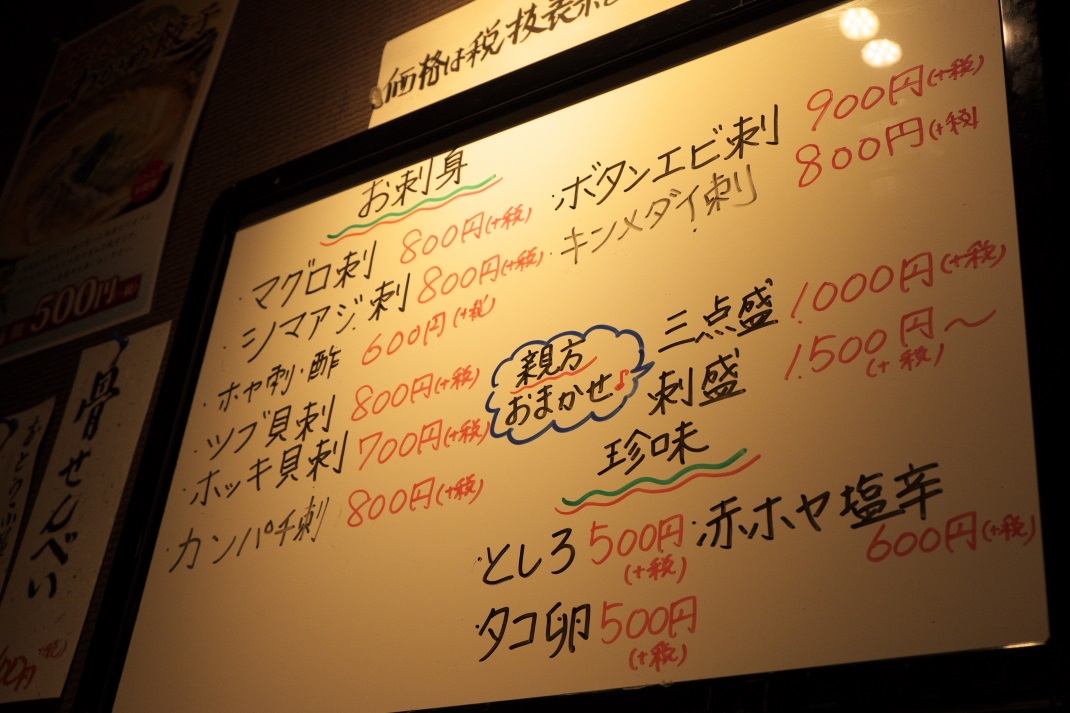 価格は税抜表示
お刺身
・マグロ刺 800円(+税)
・シマアジ刺 800円(+税)
・ホヤ刺・酢 600円(+税)
・ツブ貝刺 800円(+税)
・ホッキ貝刺 700円(+税)
・カンパチ刺 800円(+税)
・ボタンエビ刺 900円(+税)
・キンメダイ刺 800円(+税)
親方
おまかせ♪
三点盛 1.000円(+税)
刺盛 1.500円〜
(+税)
珍味
・としろ 500円
(+税)
・赤ホヤ塩辛
600円(+税)
・タコ卵 500円
(+税)
500円
骨せんべい